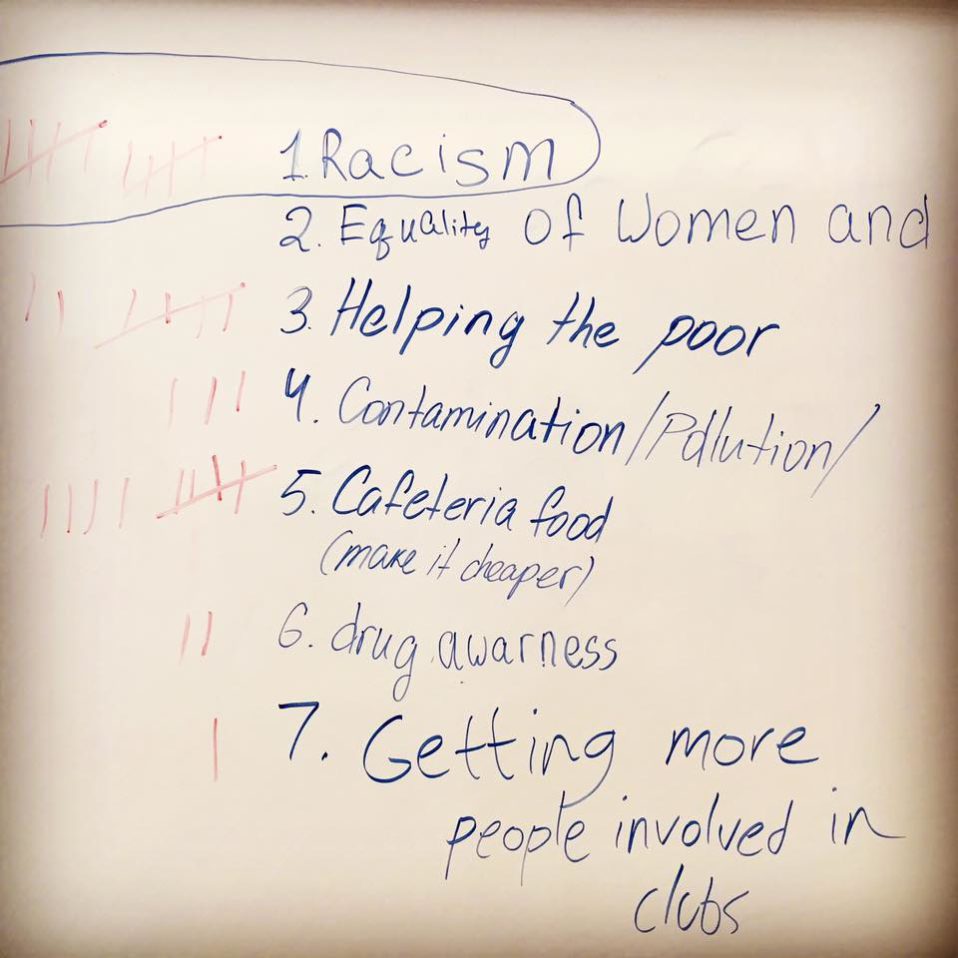 1. Racism
2. Equality of Women and
3. Helping the poor
4. Contamination/Pollution/
5. Cafeteria food
(make it cheaper)
6. drug awarness
7. Getting more
people involved in
clubs